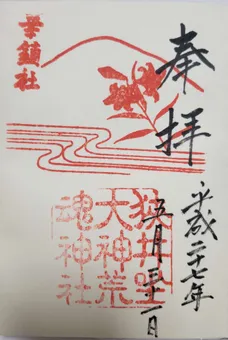 奉拝
平成二十七年
五月三十一日
華鎮社
狹井坐
大神荒
魂神社